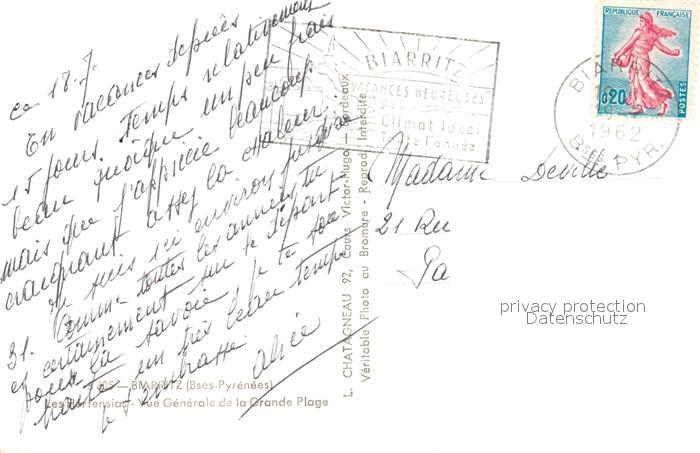 ce 18.7.
En vacances depuis
15 jours. Temps relativement
beau quoique un peu frais
mais que j'apprécie beaucoup
craignant assez la chaleur.
Je suis ici environ jusqu'au
31. Comme toutes les années, tu
es certainement sur le départ
pour la Savoie. Je te sou
haite un très beau temps
et t'embrasse
Alice
7305 - BIARRITZ (Bses-Pyrénées)
Les Hortensias - Vue Générale de la Grande Plage
L. CHATAGNEAU 92, Cours Victor-Hugo - Bordeaux
Véritable Photo au Bromure - Reprod. Interdite
BIARRITZ
"VACANCES HEUREUSES"
Climat Idéal
Toute l'année
REPUBLIQUE FRANÇAISE
0,20
POSTES
BIARRITZ
1962
Bses PYR.
Madame Deville
21 Ru
Pa
privacy protection
Datenschutz